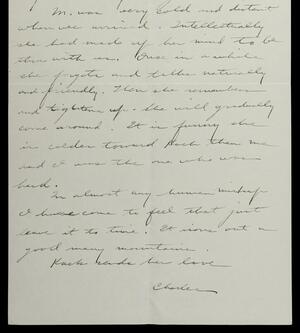 M. was very cold and distant
when we arrived. Intellectually
she had made up her mind to be
thru with us. Once in a while
she forgets and talks naturally
and friendly. Then she remembers
and tightens up. She will gradually
come around. It is funny she
is colder toward Kack than me
and I was the one who was
hard.
In almost any human mixup
I have come to feel that just
leave it to time. It irons out a
good many mountains.
Kack sends her love
Charles